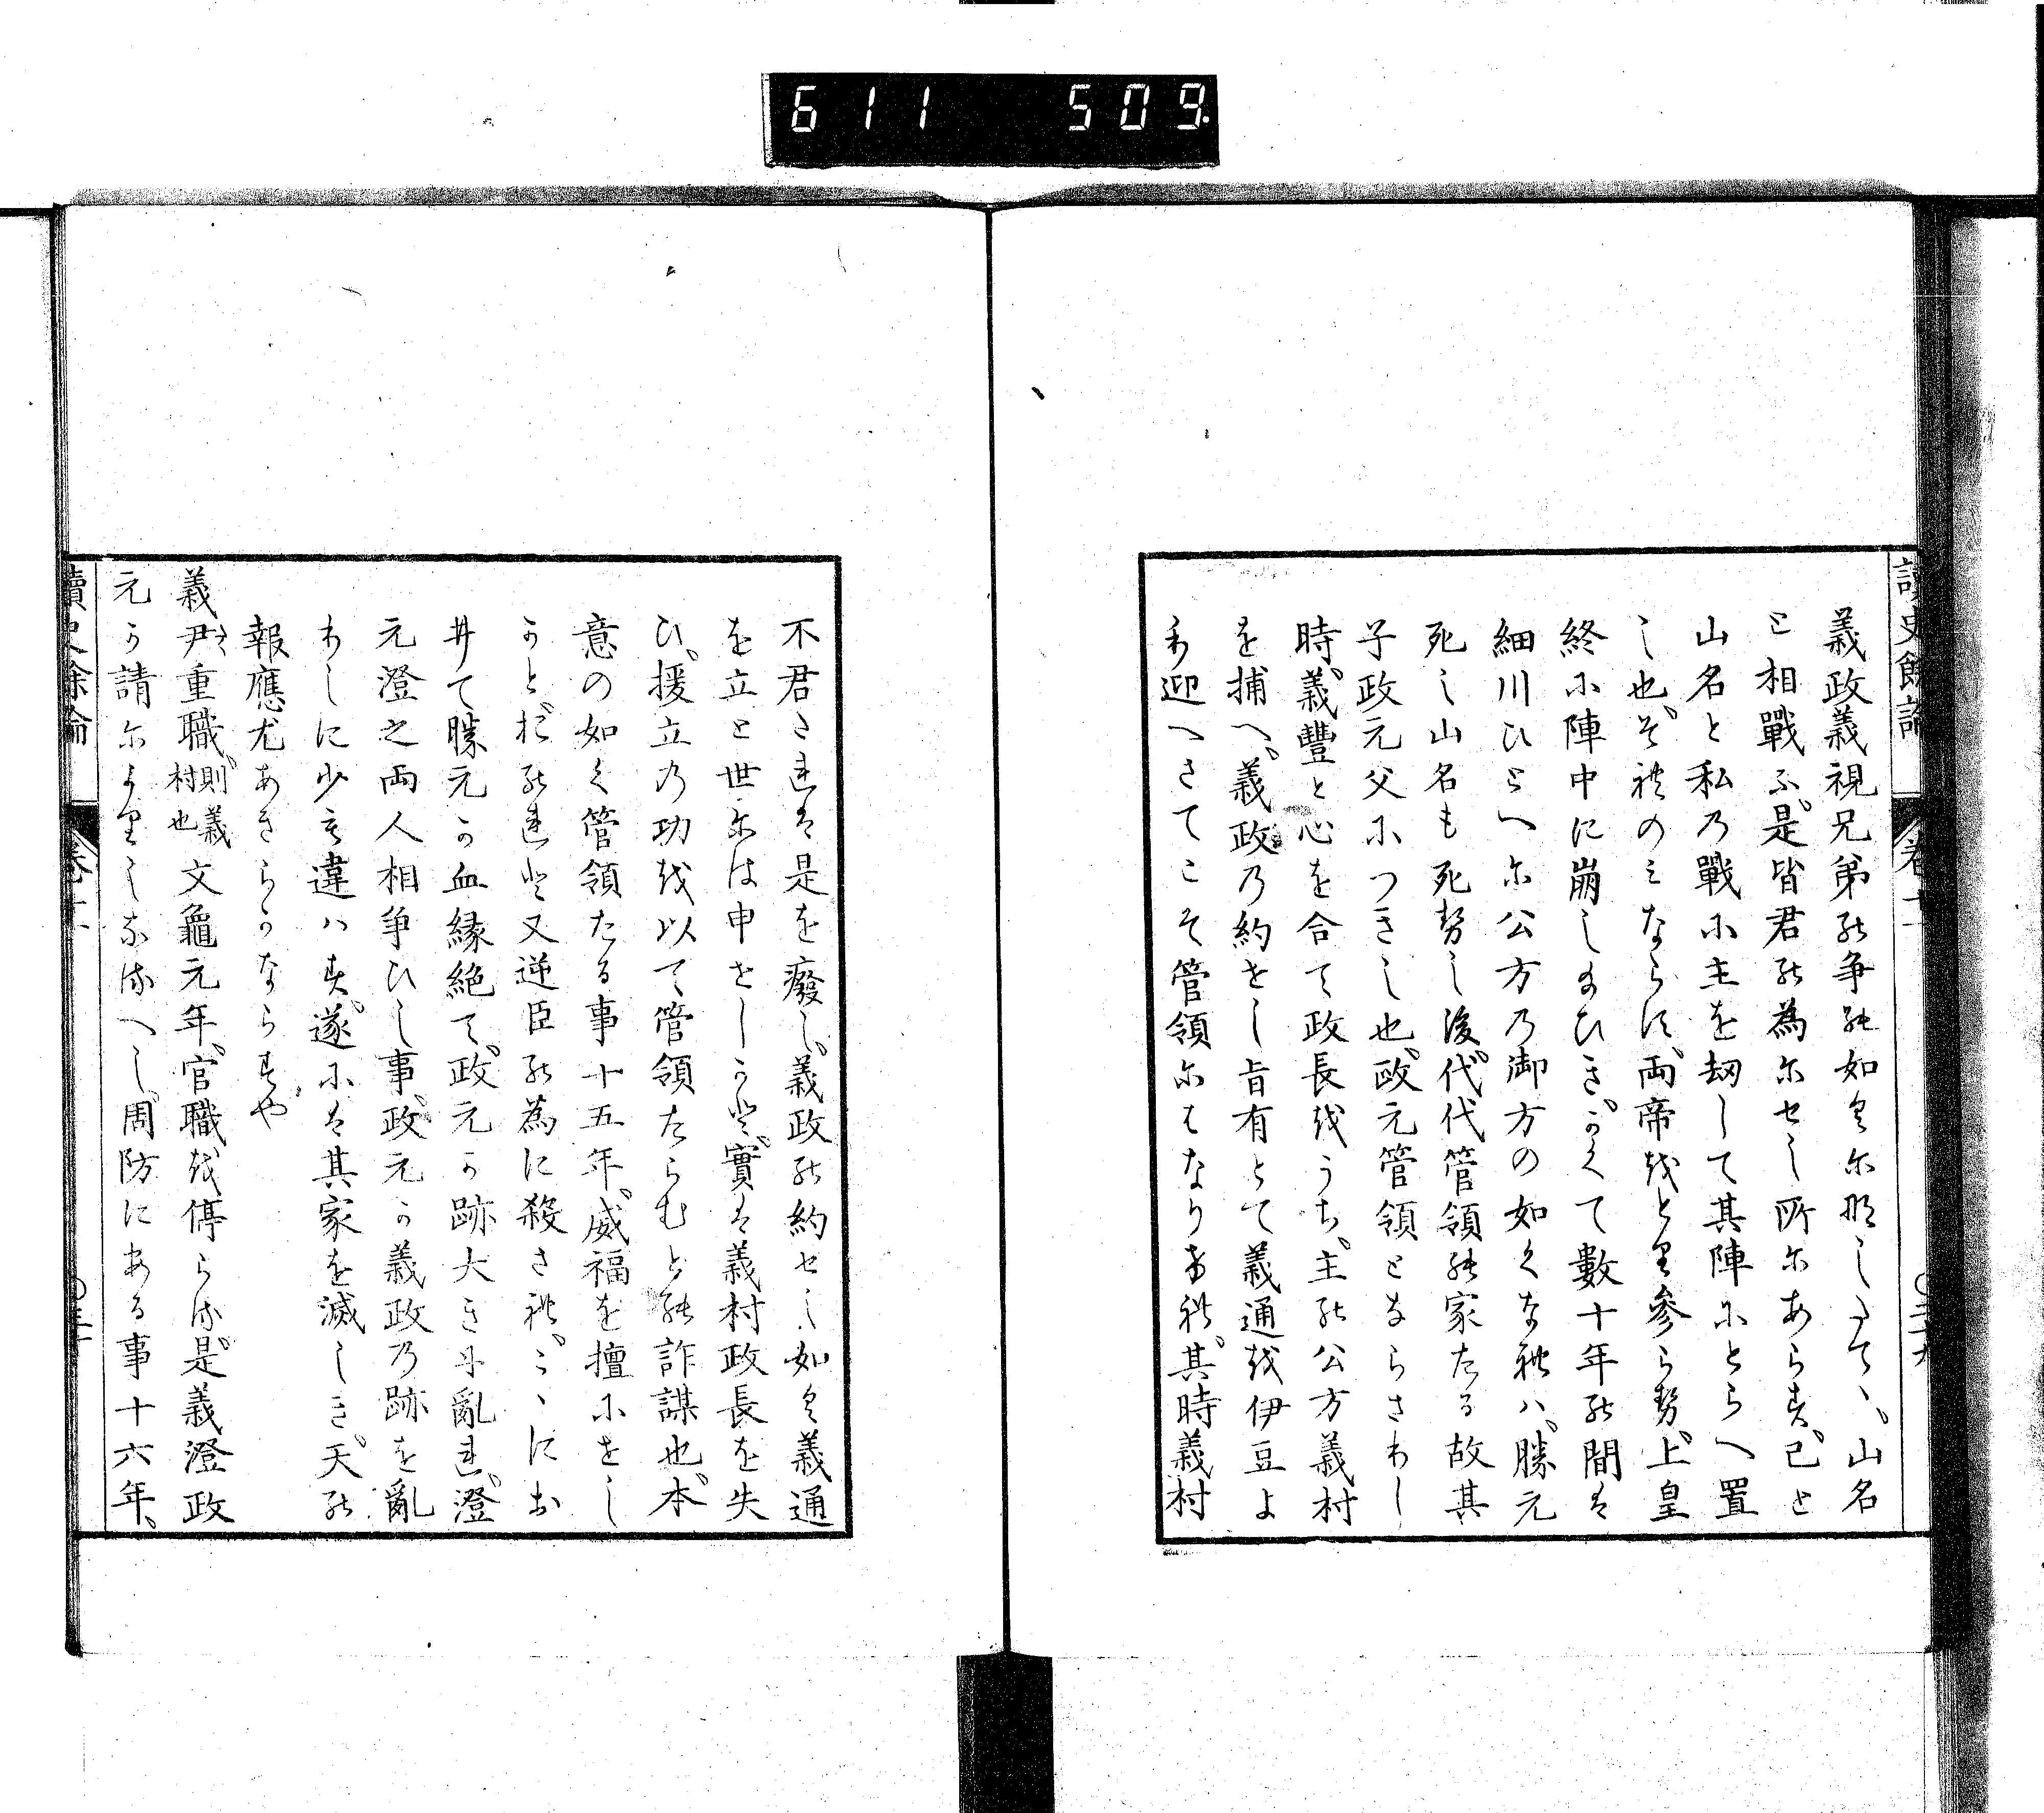 611 509
讀史餘論 卷十一
義政義視兄弟の争の如くに那してたて、山名
と相戰ふ是皆君の為にせし所にあらす己と
山名と私乃戰に主を劫して其陣にとらへ置
し也それのミならす両帝をとり参らせ上皇
終に陣中に崩し給ひきかくて數十年の間は
細川ひとへに公方乃御方の如くなれハ勝元
死し山名も死せし後代代管領の家たる故其
子政元父につきし也政元管領とならさりし
時義豐と心を合て政長をうち主の公方義村
を捕へ義政乃約をし旨有とて義通を伊豆よ
り迎へさてこそ管領にはなりけれ其時義村
不君されは是を廢し義政の約せし如く義通
を立と世には申せしかと實は義村政長を失
ひ援立乃功を以て管領たらむとの詐謀也本
意の如く管領たる事十五年威福を擅にせし
かとも那れと又逆臣の為に殺されこゝにお
井て勝元か血縁絶て政元か跡大きに亂れ澄
元澄之両人相争ひし事政元か義政乃跡を亂
りしに少も違ハす遂には其家を滅しき天の
報應尤あきらかならすや
義尹重職則義村也文龜元年官職を停らる是義澄政
元か請によりしなるへし周防にある事十六年、
讀史餘論 卷十一